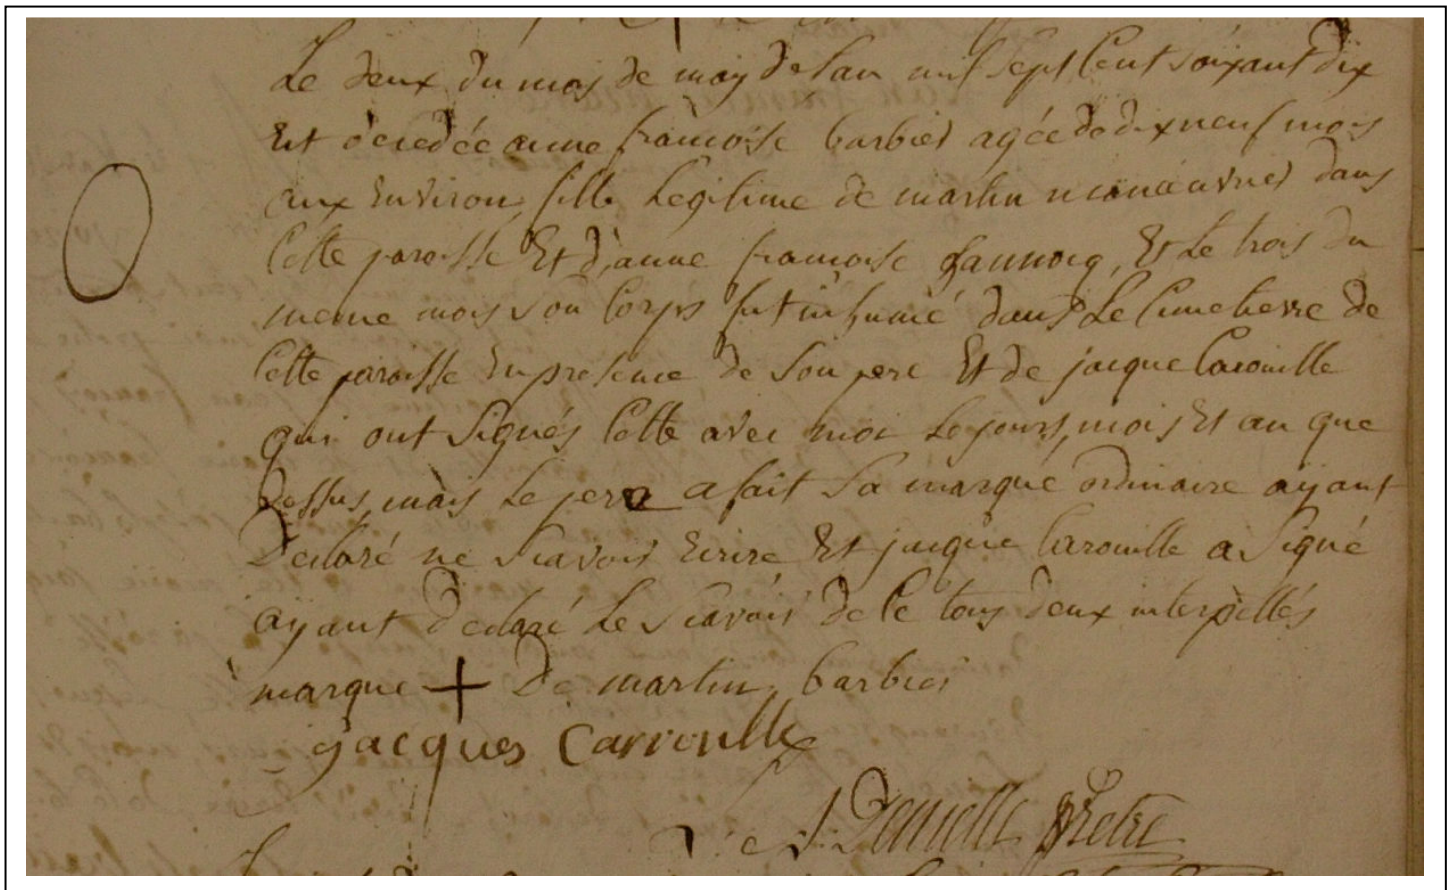 Le deux du mois de may de lan mil sept Cent soixant dix
Est décedée anne francoise barbier agée de dix neuf mois
aux Environ, fille Legitime de martin manouvrier dans
Cette paroisse Et d'anne francoise, Et Le trois du
meme mois son Corps fut inhumé dans Le Cimetierre de
Cette paroisse En presence de Son pere Et de jacque Carouille
qui ont Signés Cette avec moi Le jours, mois Et an que
dessus, mais Le pere a fait Sa marque ordinaire ayant
Declaré ne Scavoir Ecrire Et jacque Carouille a Signé
ayant Declaré Le Scavoir de Ce tous deux interpellés
marque + De martin barbier
jacques Carrouille
Pretre